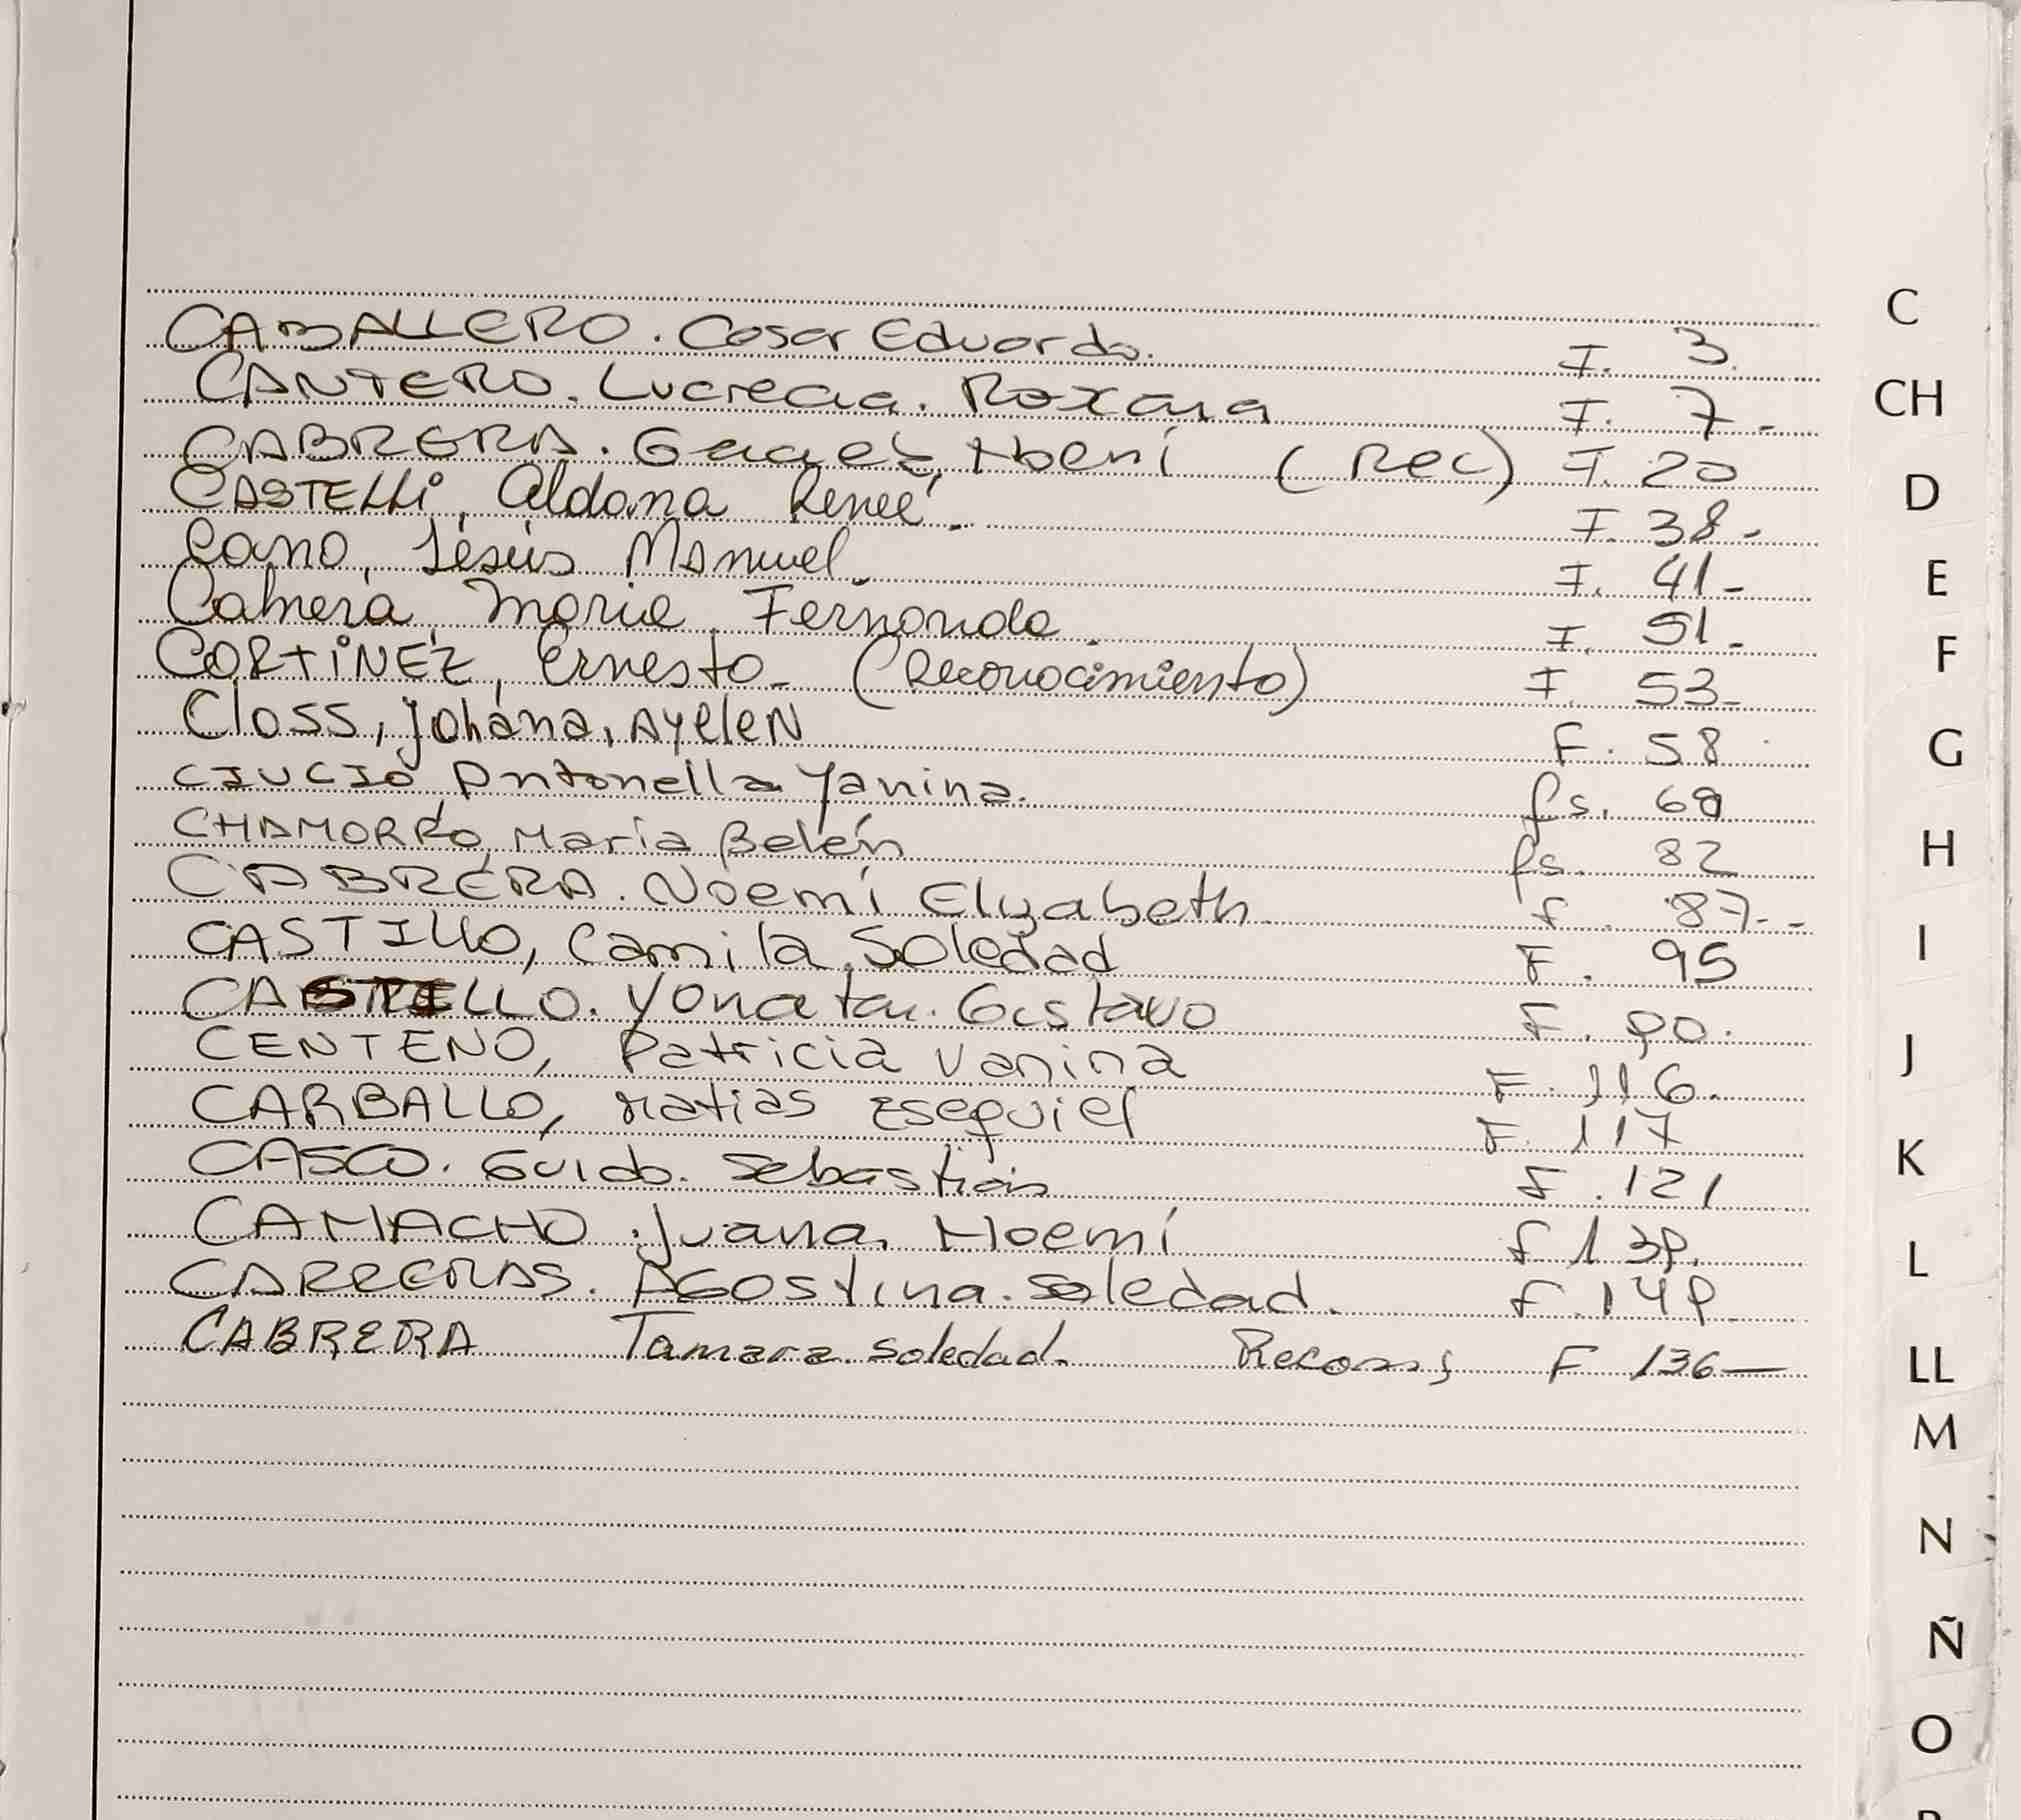 C
CABALLERO. Cesar Eduardo. F. 3.
CANTERO. Lucrecia. Roxana F. 7.-
CH
CABRERA. (Rec) F. 20
CASTELLi, Aldana Reneé.- F. 38.-
D
Cano, Jesús Manuel. F. 41-
E
Cabrera, Maria Fernanda. F. 51.-
CORTiNEZ, Ernesto- (Reconocimiento) F. 53-
F
Closs, Johána, AyeleN F. 58.
G
CIUCIO Antonella Yanina. fs. 69
CHAMORRO, María Belén fs. 82
H
CABRERA. Noemí Elyzabeth. f. 87.--
CASTILLO, Camila Soledad F. 95
I
CASTELLO. Yonatan. Gustavo F. 90.
CENTENO, Patricia Vanina F. 116.
J
CARBALLO, Matias Esequiel F. 117
CASCO. Guido. Sebastian F. 121
K
CAMACHO. Juana. Noemí f 139.
L
CARRERAS. AGostina. Soledad. f. 149
CABRERA Tamara Soledad. F 136—
LL
M
N
Ñ
O